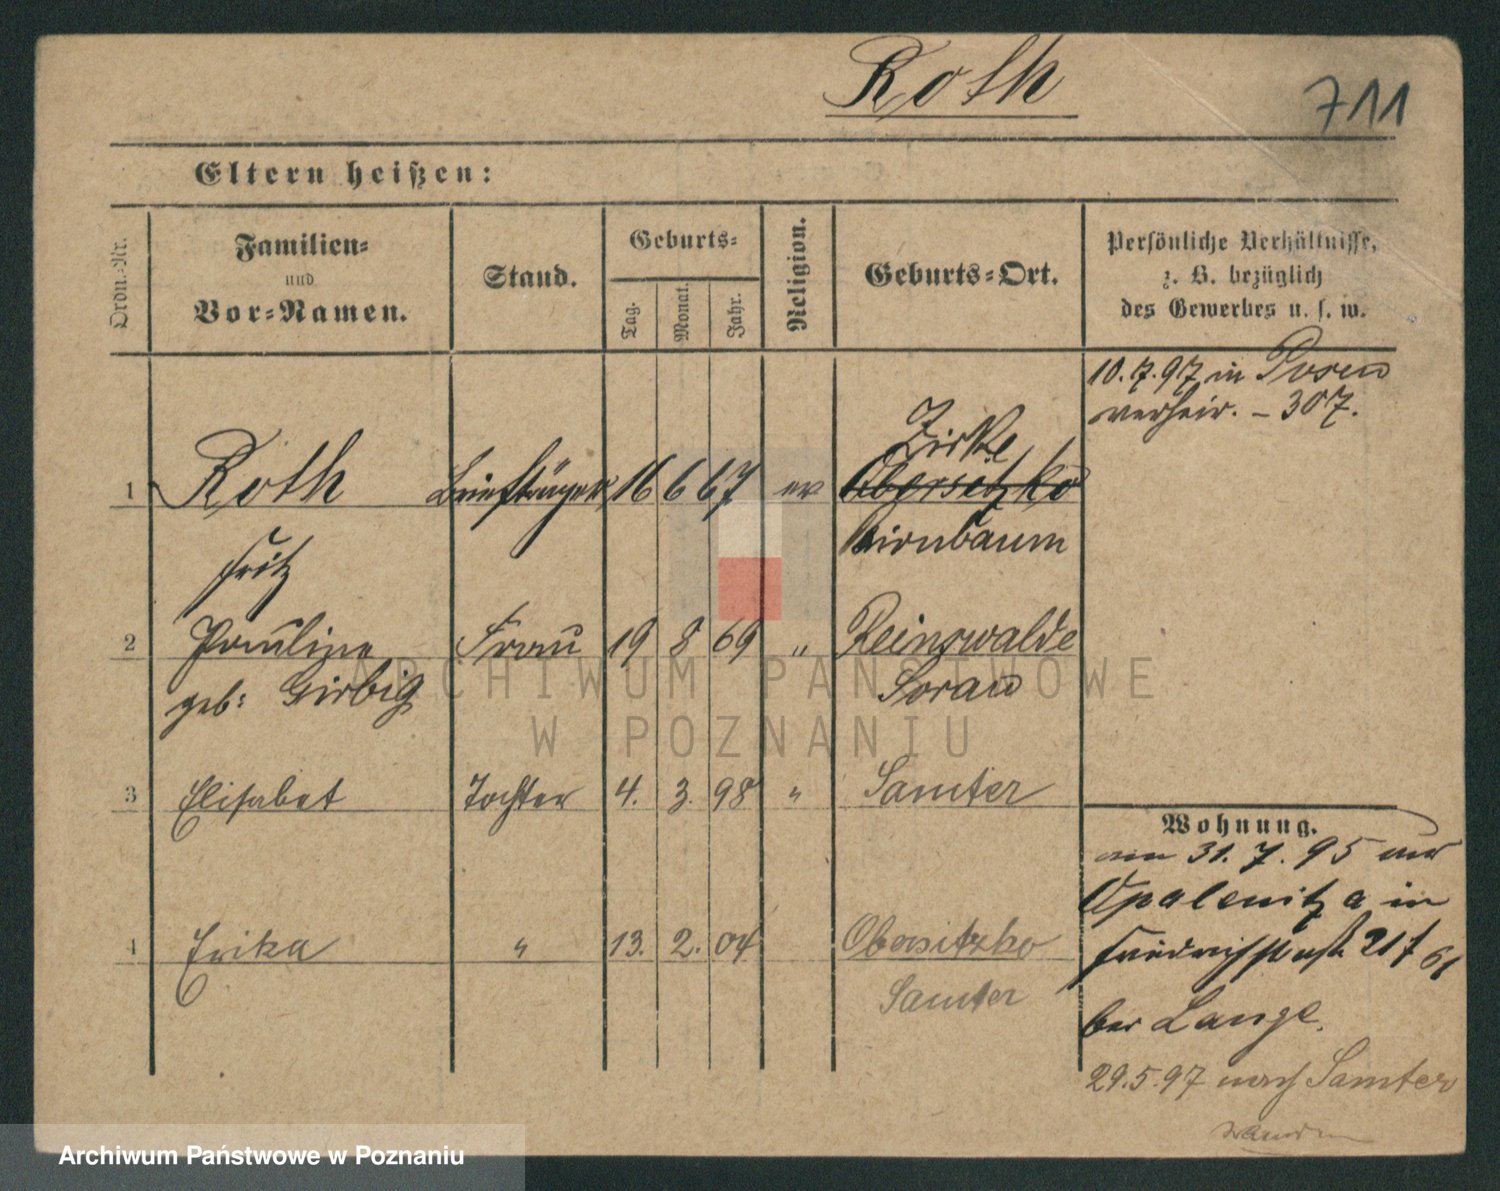 Roth
711
Eltern heißen:
Ordn.-Nr.
Familien-
und
Vor-Namen.
Stand.
Geburts-
Tag.
Monat.
Jahr.
Religion.
Geburts-Ort.
Persönliche Verhältnisse,
z. B. bezüglich
des Gewerbes u. s. w.
10.7.97 in Posen
verheir. - 307.
Zirke
1 Roth Briefträger 16 6 67 ev Obersetzko
Birnbaum
Fritz
2 Pauline Frau 19 8 69 " Reinswalde
geb: Girbig Sorau
3 Elisabet Tochter 4. 3. 98 " Samter
Wohnung.
am 31.7.95 aus
Opalenitza in
4 Erika " 13. 2. 04 Obersitzko
Friedrichstraße 21
Samter
bei Lange.
29.5.97 nach Samter
ARCHIWUM PAŃSTWOWE
W POZNANIU
Archiwum Państwowe w Poznaniu